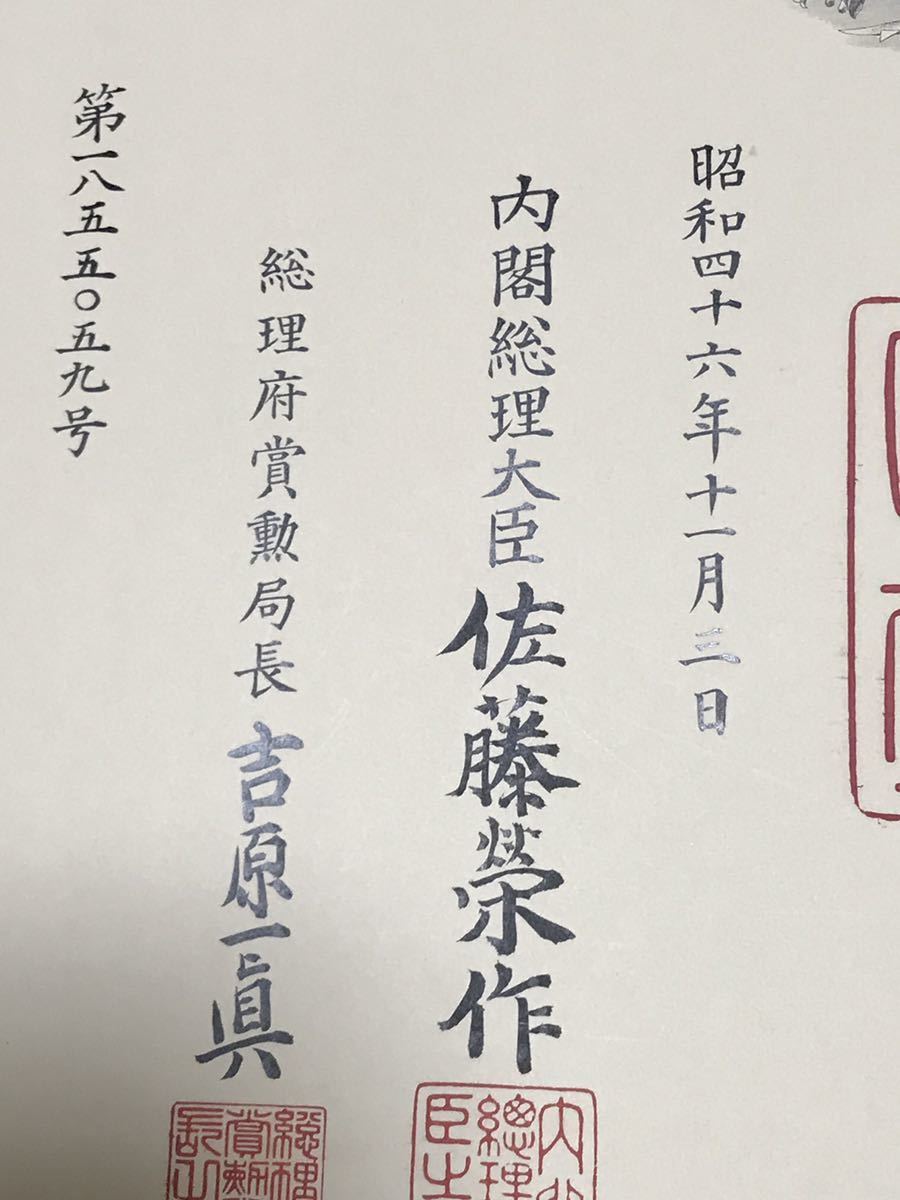 昭和四十六年十一月三日
内閣総理大臣佐藤榮作
総理府賞勲局長吉原一眞
第一八五五〇五九号